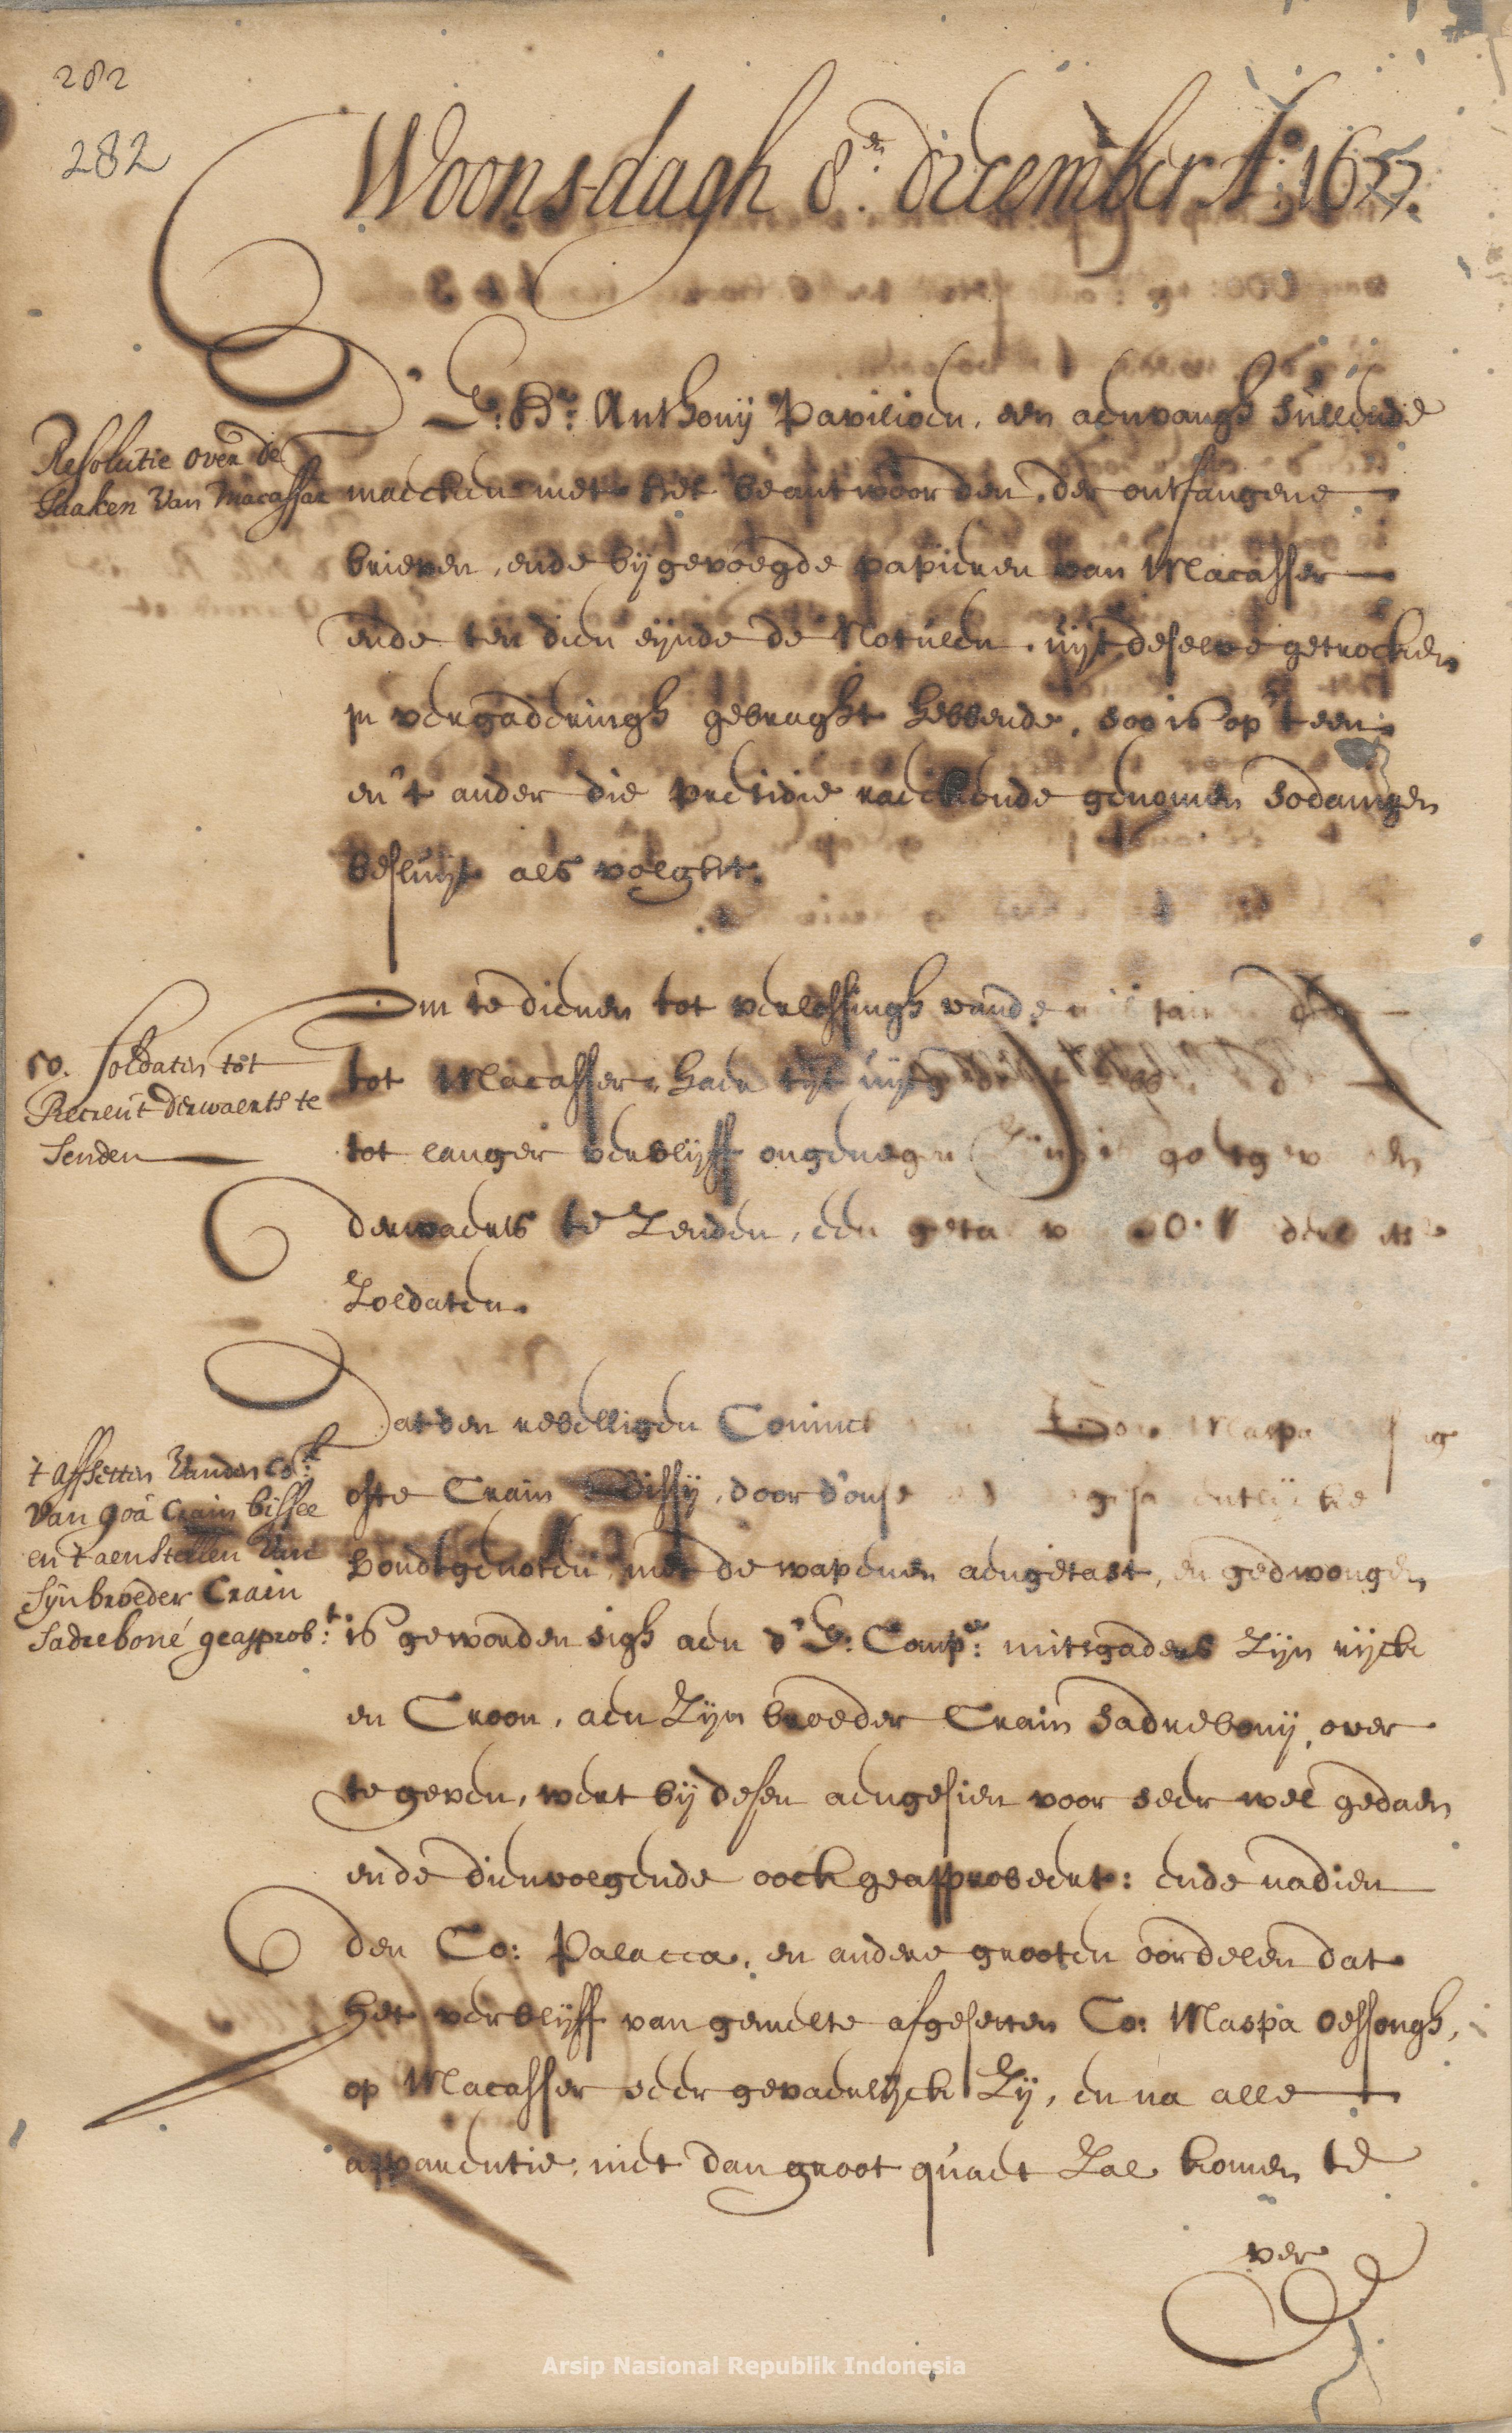 282
282
Woonsdagh 8.en december A:o 1677.
Resolutie over de
Saaken Van Macassar
D' E: Hr: Anthonij Pavilioen, een aenvangh sullende
maecken met het beantwoorden, der ontfangene
brieven, ende bijgevoegde papieren van Macasser
ende ten dien eijnde de Notulen, uijt deselve getrocken
in vergaderingh gebraght hebbende, soo is op 't een
en 't ander die provintie raeckende genomen sodanigen
besluijt als volght.
50. soldaten tot
Recreut derwaerts te
Senden
Om te dienen tot verlossingh vande militairen die
tot Macasser, haer tijt uijtgedient
tot langer verblijff ongenegen Zijn is goetgevonden
derwaerts te Zenden, een getal van 50. 
Zoldaten.
't affsetten Vanden Co:k
Van Goa Crain bissee
en 't aenstellen Van
Sijn broeder Crain
Sadrebone geapprob:t
Dat den rebelligen Coninck Maspa
ofte Crain Bissij, door d'onse
bondtgenoten, met de wapenen aengetast, en gedwongen
is geworden sigh aen d' E: Comp:e mitsgaders Zijn rijck
en Croon, aen Zijn broeder Crain Sadrebonij, over
te geven, wert bij desen aengesien voor seer wel gedaen
ende dienvolgende oock geapprobeert: ende nadien
den Co: Palacca, en andere grooten oordelen dat
het verblijff van gemelte afgesetten Co: Maspa Oessongh,
op Macasser seer gevaerlijck Zij, en na alle
apparentie, niet dan groot quaet Zal komen te
ver
Arsip Nasional Republik Indonesia